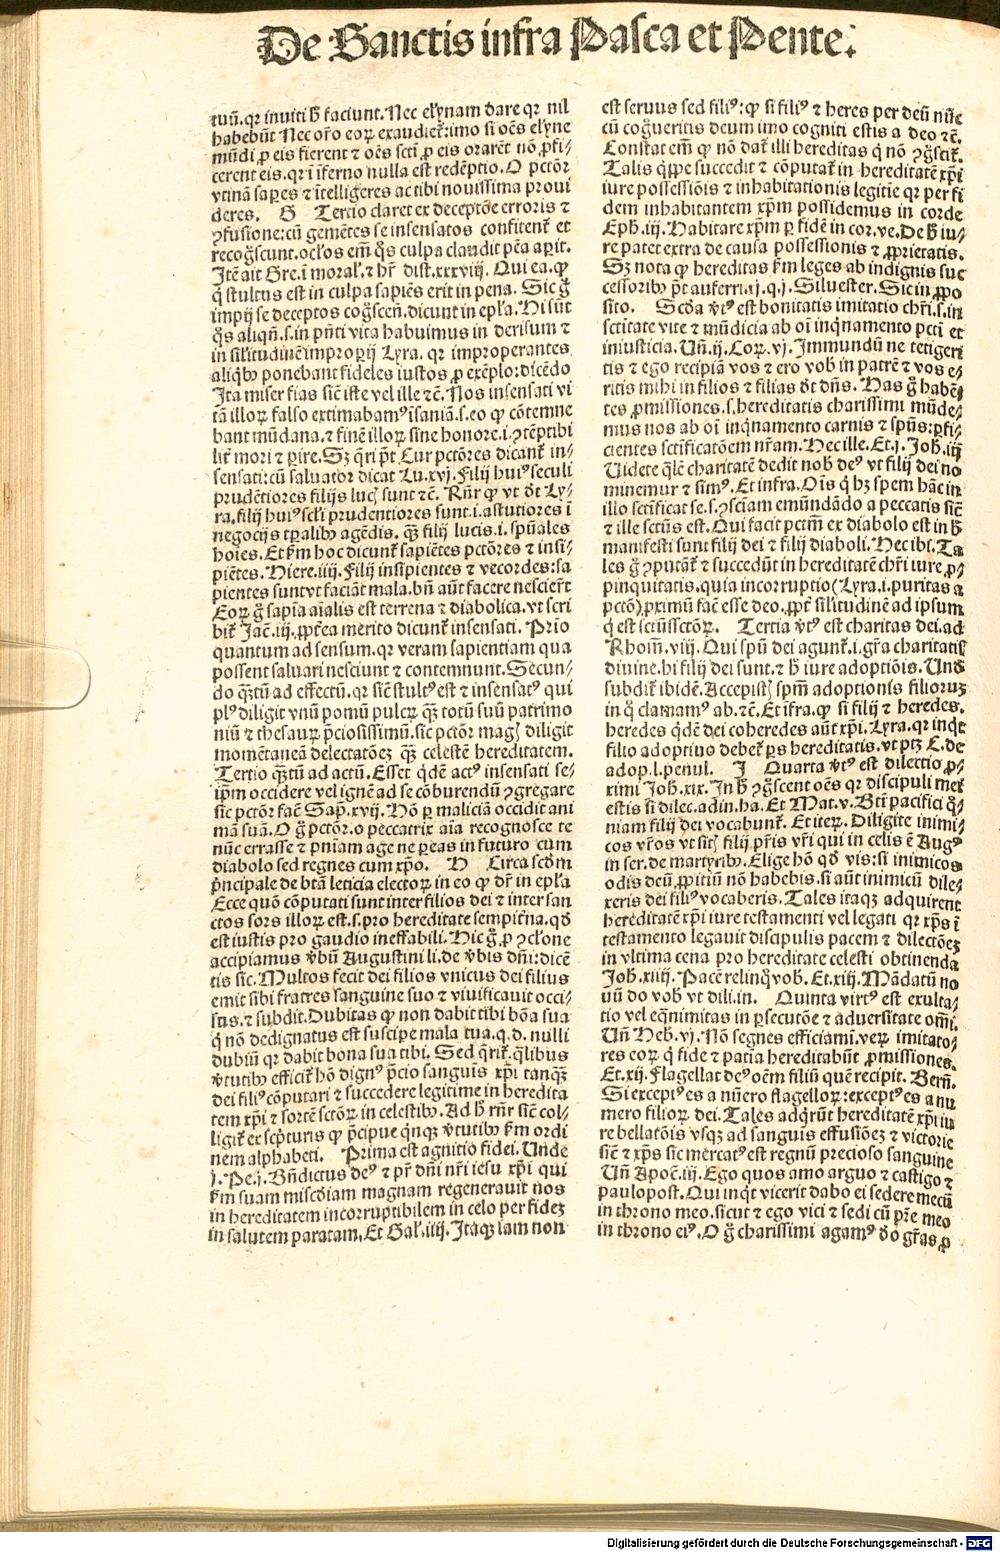 De Sanctis infra Pasca et Pente.
tuū. qꝛ inuiti ħ faciunt. Nec elꝫynam dare qꝛ nil
habebūt Nec orō eoꝝ exaudiet̄: imo si oēs elꝫyne
mūdi ꝓ eis fierent ⁊ oēs scti ꝓ eis orarēt nō ꝓfi/
cerent eis. qꝛ ī īferno nulla est redēptio. O pctōr
vtinā saperes ⁊ ītelligeres ac tibi nouissima proui
deres. G Tercio claret ex deceptōe erroris ⁊
ꝯfusione: cū gemētes se insensatos confitent̄ et
recog̃scunt. ocłos em̄ q̄s culpa claudit pēa aꝑit.
Itē ait Gre. ī moral. ⁊ hr̄ dist. xxxviij. Qui ea. ꝙ
q̇ stultus est in culpa sapiēs erit in pena. Sic g̃
impij se deceptos cog̃scen̄. dicunt in epła. Hi sūt
q̄s aliqn̄. s. in pn̄ti vita habuimus in derisum ⁊
in silitudinē improꝑij Lyra. qꝛ improperantes
aliqͥbꝰ ponebant fideles iustos ꝓ exēplo: dicēdo
Ita miser fias siē iste vel ille ⁊c̄. Nos insensati vi
tā illoꝝ falso extimabamꝰ īsaniā. s. eo ꝙ cōtemne
bant mūdana. ⁊ finē illoꝝ sine honore. i. ꝯtēptibi
lit̄ mori ⁊ ꝑire. Sꝫ q̄ri pt̄ Cur pctōres dicant̄ in/
sensati: cū saluator dicat Lu. xvj. Filij huiꝰ seculi
prudētiores filijs lucꝭ sunt ⁊c̄. Rn̄r ꝙ vt dt Ly/
ra. filij huiꝰ scłi prudentiores sunt. i. astutiores ī
negocijs tꝑalibꝰ agēdis. q̄ꝫ filij lucis. i. spūales
hoīes. Et ẜm hoc dicunt̄ sapiētes pctōres ⁊ insi/
piētes. Hiere. iiij. Filij insipientes ⁊ vecordes: sa
pientes sunt vt faciāt mala. bn̄ aūt facere nescierūt
Eoꝝ g̃ sapīa aīalis est terrena ⁊ diabolica. vt scri
bit̄ Jac̄. iij. ꝓpt̄ea merito dicunt̄ insensati. Prīo
quantum ad sensum. qꝛ veram sapientiam qua
possent saluari nesciunt ⁊ contemnunt. Secun/
do q̄ꝫtū ad effectū. qꝛ siē stultꝰ est ⁊ insensatꝰ qui
plꝰ diligit vnū pomū pulcꝝ q̄ꝫ totū suū patrimo
niū ⁊ thesauꝝ p̄ciosissimū. sic pctōr magꝭ diligit
momētaneā delectatōeꝫ q̄ꝫ celestē hereditatem.
Tertio q̄ꝫtū ad actū. Esset q̇dē actꝰ insensati se/
ip̄m occidere vel ignē ad se cōburendū ꝯgregare
sic pctōr fac̄ Sap̄. xvij. Hō ꝑ maliciā occidit ani
mā suā. O g̃ pctōr. o peccatrix aīa recognosce te
nūc errasse ⁊ pn̄iam age ne ꝑeas in futuro cum
diabolo sed regnes cum xp̄o. H Circa scdm
p̄ncipale de btā leticia electoꝝ in eo ꝙ dr̄ in epła
Ecce quō cōputati sunt inter filios dei ⁊ inter san
ctos sors illoꝝ est. s. pro hereditate sempit̄na. qd
est iustis pro gaudio ineffabili. Hic g̃ ꝓ ꝯclone
accipiamus v̄bū Augustini li. de v̄bis dn̄i: dicē
tis sic. Multos fecit dei filios vnicus dei filius
emit sibi fratres sanguine suo ⁊ viuificauit occi/
sus. ⁊ subdit. Dubitas ꝙ non dabit tibi bōa sua
q̇ nō dedignatus est suscipe mala tua. q. d. nulli
dubiū qꝛ dabit bona sua tibi. Sed q̄rit̄. q̇libus
v̄tutibꝰ efficit̄ hō dignꝰ p̄cio sanguis xp̄i tanq̄ꝫ
dei filiꝰ cōputari ⁊ succedere legitime in heredita
tem xp̄i ⁊ sortē sctōꝝ in celestibꝰ. Ad ħ rn̄r siē col/
ligit̄ ex scꝑturis ꝙ p̄cipue q̇nqꝫ v̄tutibꝰ ẜm ordi
nem alphabeti. Prima est agnitio fidei. Unde
j. Pe. j. Bn̄dictus deꝰ ⁊ pr̄ dn̄i nr̄i iesu xp̄i qui
ẜm suam misc̄diam magnam regenerauit nos
in hereditatem incorruptibilem in celo per fideꝫ
in salutem paratam. Et Gal. iiij. Itaqꝫ iam non
est seruus sed filiꝰ: ꝙ si filiꝰ ⁊ heres per deū nūc
cū cog̃ueritis deum imo cogniti estis a deo ⁊c̄.
Constat em̄ ꝙ nō dat̄ illi hereditas q̇ nō ꝯg̃scit̄.
Talis q̇ppe succedit ⁊ cōputat̄ in hereditatē xp̄i
iure possessiōis ⁊ inhabitationis legitie qꝛ per fi
dem inhabitantem xp̄m possidemus in corde
Eph. iij. Habitare xp̄m ꝑ fidē in cor. ve. De ħ iu/
re patet extra de causa possessionis ⁊ ꝓprietatis.
Sꝫ nota ꝙ hereditas ẜm leges ab indignis suc
cessoribꝰ pt̄ auferri. ij. q. j. Siluester. Sic in ꝓpo
sito. Scda v̄tꝰ est bonitatis imitatio chr̄i. s. in
sctitate vite ⁊ mūdicia ab oī inqͥnamento pcti et
iniusticia. Un̄. ij. Coꝝ. vj. Immundū ne tetigeri
tis ⁊ ego recipiā vos ⁊ ero vob in patrē ⁊ vos e/
ritis mihi in filios ⁊ filias dt dn̄s. Has g̃ habē/
tes ꝓmissiones. s. hereditatis charissimi mūde/
mus nos ab oī inqͥnamento carnis ⁊ spūs: ꝑfi/
cientes sctificatōem nr̄am. Hec ille. Et. j. Joh. iij
Uidete qͣlē charitatē dedit nob deꝰ vt filij dei no
minemur ⁊ simꝰ. Et infra. Oīs q̇ hꝫ spem hāc in
illo sctificat se. s. ꝯsciam emūdādo a peccatis siē
⁊ ille sctūs est. Qui facit pctm̄ ex diabolo est in ħ
manifesti sunt filij dei ⁊ filij diaboli. Hec ibi. Ta
les g̃ ꝯputant̄ ⁊ succedūt in hereditatē chr̄i iure ꝓ/
pinquitatis. quia incorruptio (Lyra. i. puritas a
pctō) ꝓximū fac̄ esse deo. ꝓpt̄ silitudinē ad ipsum
q̇ est sctūs sctōꝝ. Tertia v̄tꝰ est charitas dei. ad
Rhom̄. viij. Qui spū dei agunt̄. i. gr̄a charitatis
diuine. hi filij dei sunt. ⁊ ħ iure adoptiōis. Und
subdit̄ ibidē. Accepistꝭ spm̄ adoptionis filioruꝫ
in q̊ clamamꝰ ab. ⁊c̄. Et īfra. ꝙ si filij ⁊ heredes.
heredes q̇dē dei coheredes aūt xp̄i. Lyra. qꝛ inqͥt
filio adoptiuo debet̄ ꝑs hereditatis. vt ptꝫ C. de
adop. l. penul. J Quarta v̄tꝰ est dilectio ꝓ/
ximi Joh. xix. In ħ ꝯg̃scent oēs qꝛ discipuli mei
estis si dilec. ad in. ha. Et Mat. v. Bti pacifici q̄/
niam filij dei vocabunt̄. Et iteꝝ. Diligite inimi/
cos vr̄os vt sitꝭ filij pr̄is vr̄i qui in celis ē Augꝰ
in ser. de martyribꝰ. Elige hō qd vis: si inimicos
odis deū ꝓpitiū nō habebis. si aūt inimicū dile/
xeris dei filiꝰ vocaberis. Tales itaqꝫ adquirent
hereditatē xp̄i iure testamenti vel legati qꝛ xp̄s ī
testamento legauit discipulis pacem ⁊ dilectōeꝫ
in vltima cena pro hereditate celesti obtinenda
Joh. xiiij. Pacē relinq̊ vob. Et. xiij. Mādatū no
uū do vob vt dili. in. Quinta virtꝰ est exulta/
tio vel eq̄nimitas in ꝑsecutōe ⁊ aduersitate om̄i.
Un̄ Heb. vj. Nō segnes efficiamī. veꝝ imitato/
res eoꝝ q̇ fide ⁊ patīa hereditabūt ꝓmissiones.
Et. xij. Flagellat deꝰ oēm filiū quē recipit. Bern̄.
Si exceptꝰ es a nūero flagelloꝝ: exceptꝰ es a nu
mero filioꝝ dei. Tales adq̇rūt hereditatē xp̄i iu
re bellatōis vsqꝫ ad sanguis effusiōeꝫ ⁊ victorie
siē ⁊ xp̄s sic mercatꝰ est regnū precioso sanguine
Un̄ Apoc̄. iij. Ego quos amo arguo ⁊ castigo ⁊
paulopost. Qui inqͥt vicerit dabo ei sedere mecū
in throno meo. sicut ⁊ ego vici ⁊ sedi cū pr̄e meo
in throno eiꝰ. O g̃ charissimi agamꝰ do gr̄as ꝓ
Digitalisierung gefördert durch die Deutsche Forschungsgemeinschaft - DFG